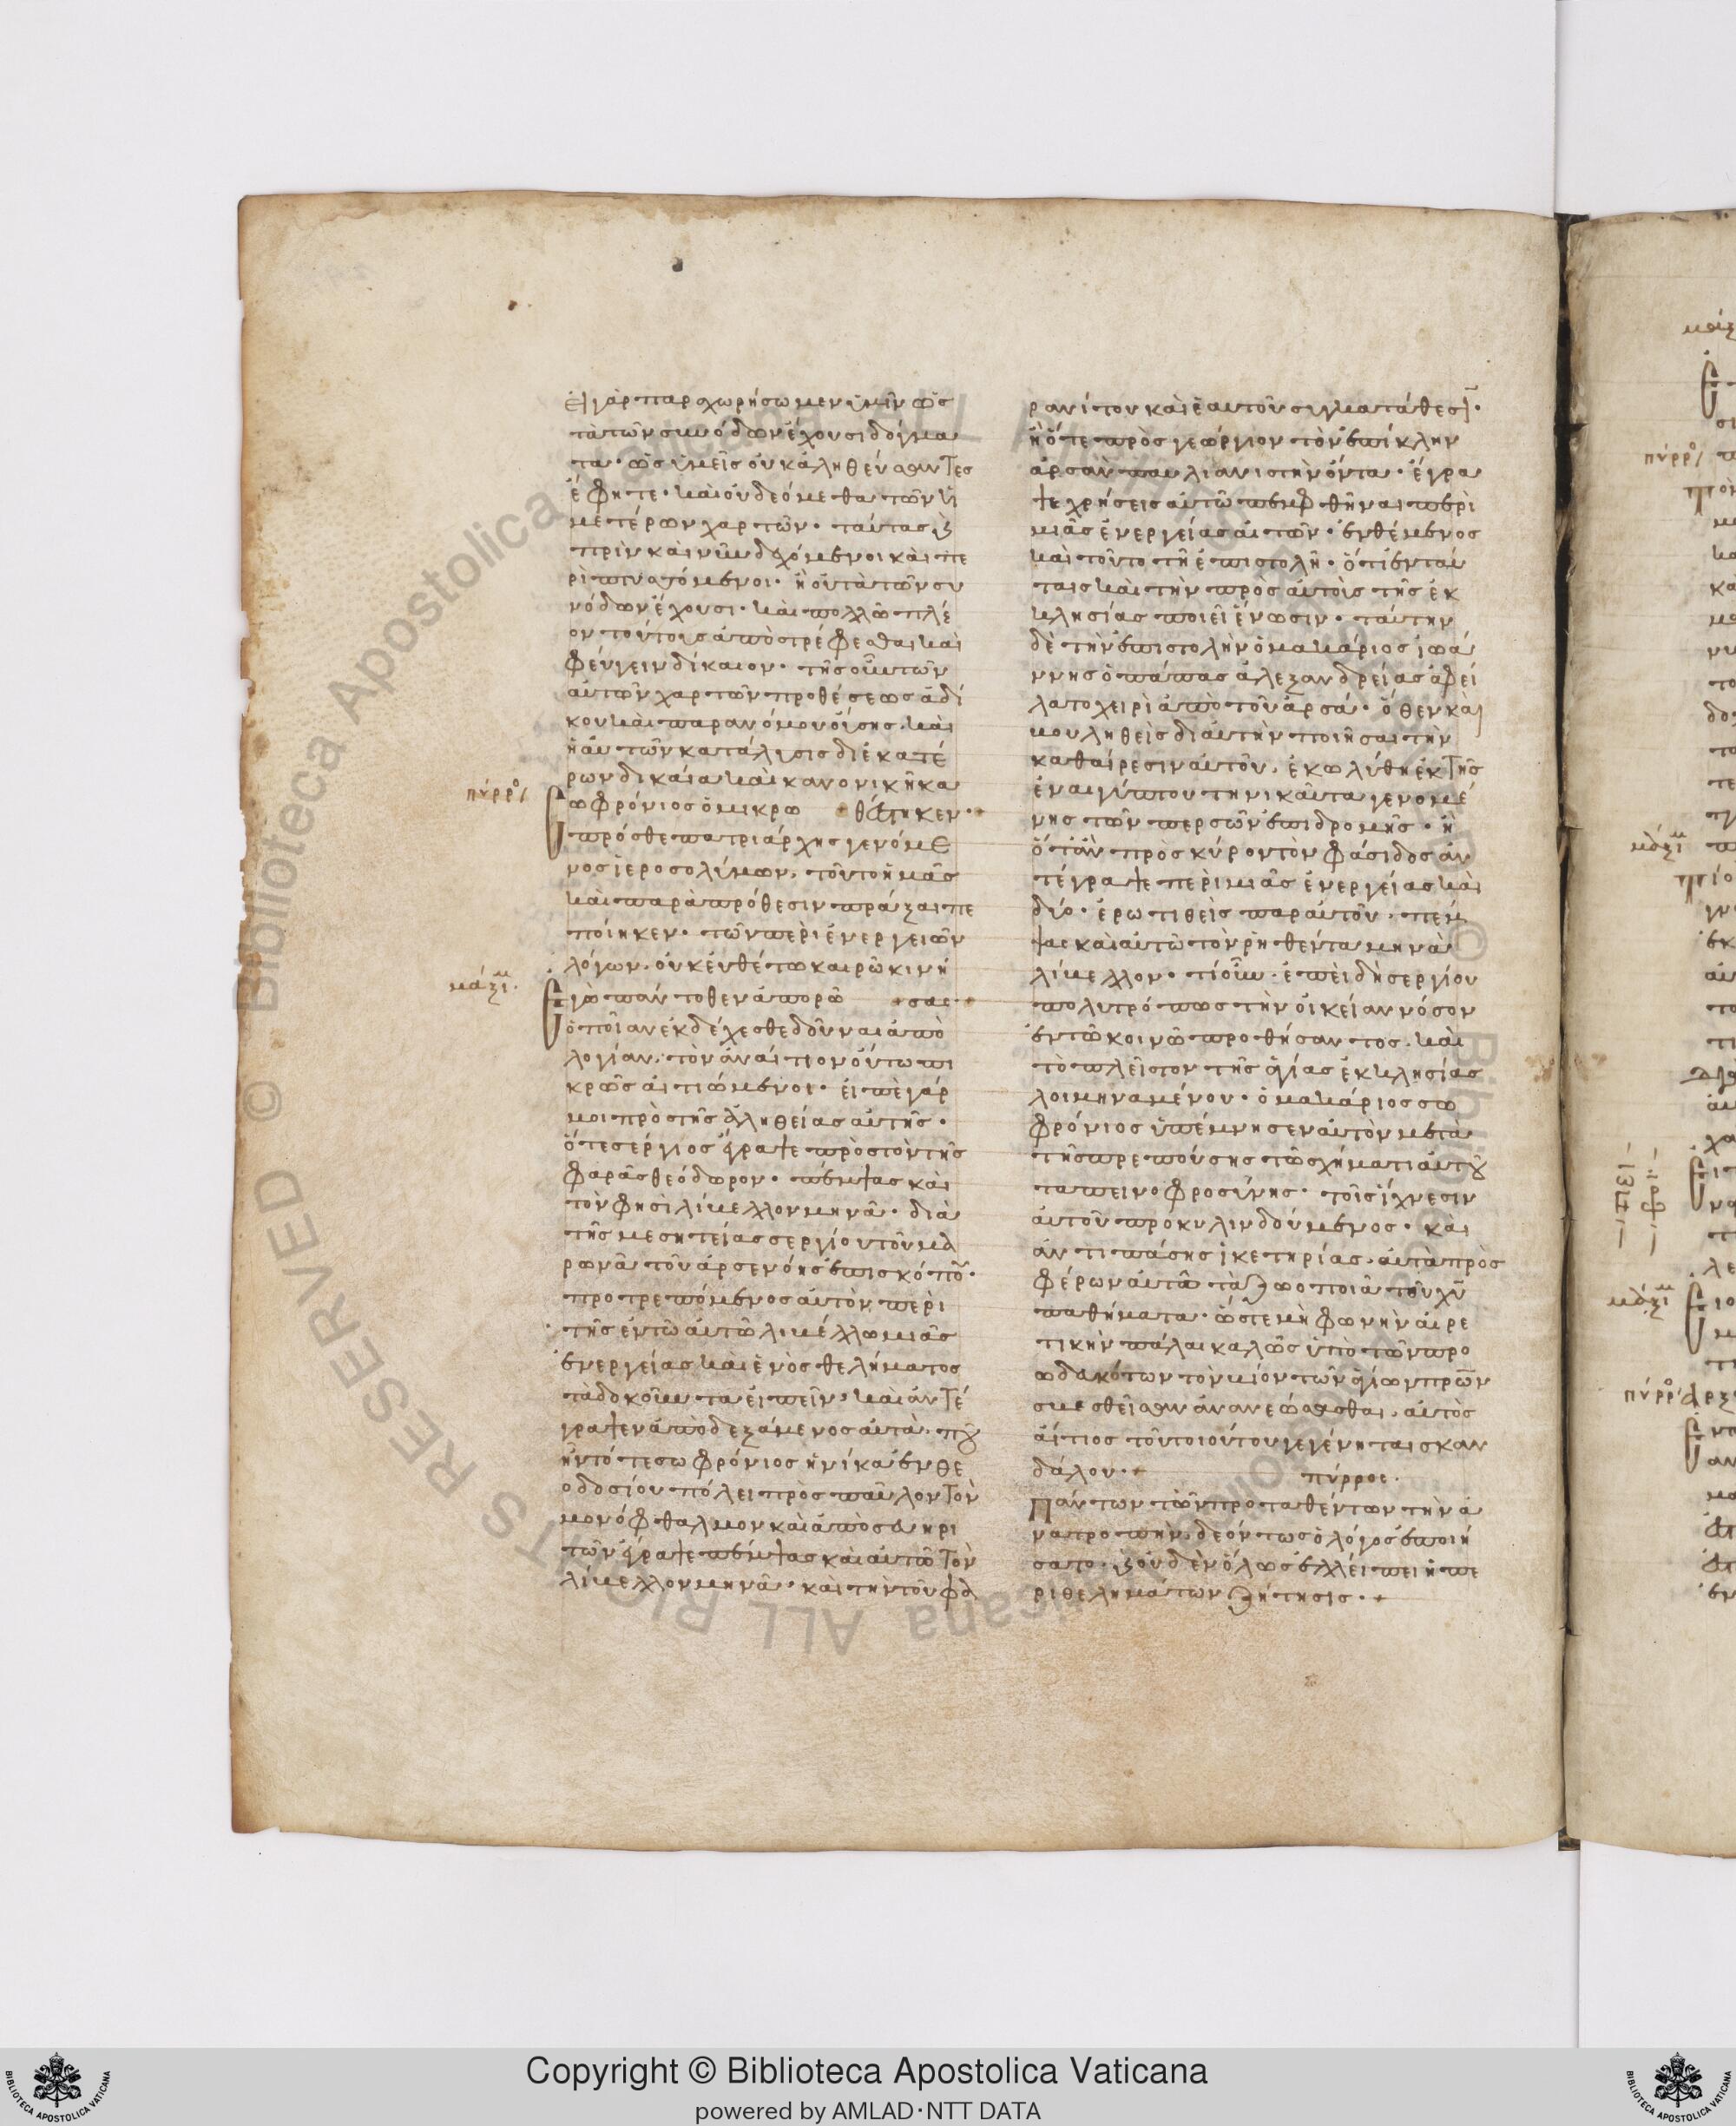 Εἰ γὰρ παραχωρήσωμεν ὑμῖν ὡς
τὰ τῶν συνόδων ἔχουσι δόγμα
τα· ὡς ὑμεῖς οὐκ ἀληθεύσαντες
ἔφητε· καὶ οὐ δεόμεθα τῶν ὑ
μετέρων χαρτῶν· ταύτας
πρὶν καὶ νῦν δεχόμενοι καὶ πε
ριπτυσσόμενοι· ἢ οὐ τὰ τῶν συ
νόδων ἔχουσι· καὶ πολλῶ πλέ
ον τούτους ἀποστρέφεσθαι καὶ
φεύγειν δίκαιον· τῆς οὖν τῶν
αὐτῶν χαρτῶν προθέσεως ἀδί
κου καὶ παρανόμου οὔσης· καὶ
ἡ αὐτῶν κατάλυσις δι' ἑκατέ
ρων δικαία καὶ κανονικὴ κα
θέστηκεν·
πύρρος
Σωφρόνιος ὁ μικρῶ
πρόσθε πατριάρχης γενόμε
νος ἱεροσολύμων, τοῦτο ἡμᾶς
καὶ παρὰ πρόθεσιν πράξαι πε
ποίηκεν· τὸν περὶ ἐνεργειῶν
λόγον, οὐκ ἐν θέτω καιρῶ κινή
σας·
μάξιμ
Ἐγὼ πάντοθεν ἀπορῶ
ὁποίαν ἐκδέχεσθε δοῦναι ἀπο
λογίαν, τὸν ἀναίτιον οὕτω πι
κρῶς αἰτιώμενοι· εἰπὲ γάρ
μοι πρὸς τῆς ἀληθείας αὐτῆς·
ὅτε σέργιος ἔγραψε πρὸς τὸν τῆς
φαρὰς θεόδωρον· πέμψας καὶ
τὸν φησὶ λίβελλον μηνᾶ· διὰ
τῆς μεσητείας σεργίου τοῦ μα
ρωνᾶ τοῦ ἀρσενόης ἐπισκόπου·
προτρεπόμενος αὐτὸν περὶ
τῆς ἐν τῶ αὐτῶ λιβέλλω μιᾶς
ἐνεργείας καὶ ἑνὸς θελήματος
τὰ δοκοῦντα εἰπεῖν· καὶ ἀντέ
γραψεν ἀποδεξάμενος αὐτά· ποῦ
ἦν τότε σωφρόνιος ἡνίκα ἐν θε
οδοσίου πόλει πρὸς παῦλον τὸν
μονόφθαλμον καὶ ἀπὸ σευηρι
τῶν ἔγραψε πέμψας καὶ αὐτῶ τὸν
λίβελλον μηνᾶ· καὶ τὴν τοῦ φα
ρανίτου καὶ ἑαυτοῦ συγκατάθεσι·
ἢ ὅτε πρὸς γεώργιον τὸν ἐπίκλην
ἀρσᾶν παυλιανιστὴν ὄντα· ἔγρα
ψε χρήσεις αὐτῶ πεμφθῆναι περὶ
μιᾶς ἐνεργείας αἰτῶν· ἐνθέμενος
καὶ τοῦτο τῆ ἐπιστολῆ· ὅτι ἐν ταύ
ταις καὶ τὴν πρὸς αὐτοὺς τῆς ἐκ
κλησίας ποιεῖ ἕνωσιν· ταύτην
δὲ τὴν ἐπιστολὴν ὁ μακάριος ἰωά
ννης ὁ πάπας ἀλεξανδρείας ἀφεί
λατο χειρὶ ἀπὸ τοῦ ἀρσᾶ· ὅθεν καὶ
βουληθεὶς δι' αὐτὴν ποιῆσαι τὴν
καθαίρεσιν αὐτοῦ, ἐκωλύθη ἐκ τῆς
ἐν αἰγύπτου τηνικαῦτα γενομέ
νης τῶν περσῶν ἐπιδρομῆς· ἢ
ὅταν πρὸς κύρον τὸν φάσιδος ἀν
τέγραψε περὶ μιᾶς ἐνεργείας καὶ
δύο· ἐρωτηθεὶς παρ' αὐτοῦ, πέμ
ψας καὶ αὐτῶ τὸν ῥηθέντα μηνᾶ
λίβελλον· τί οὖν· ἐπειδὴ σεργίου
πολυτρόπως τὴν οἰκείαν νόσον
ἐν τῶ κοινῶ προθήσαντος, καὶ
τὸ πλεῖστον τῆς ἁγίας ἐκκλησίας
λοιμηναμένου· ὁ μακάριος σω
φρόνιος ὑπέμνησεν αὐτὸν μετὰ
τῆς πρεπούσης τῶ σχήματι αὐτοῦ
ταπεινοφροσύνης· τοῖς ἴχνεσιν
αὐτοῦ προκυλινδούμενος· καὶ
ἀντὶ πάσης ἱκετηρίας, αὐτὰ προς
φέρων αὐτῶ τὰ ζωοποιὰ τοῦ χυ
παθήματα· ὥστε μὴ φωνὴν αἱρε
τικὴν πάλαι καλῶς ὑπὸ τῶν προ
ωδευκότων τὸν βίον τῶν ἁγίων πρων
σβεσθεῖσαν ἀνανεώσασθαι, αὐτὸς
αἴτιος τοῦ τοιούτου γεγένηται σκαν
δάλου· πύρρος·
Πάντων τῶν προταθέντων τὴν ἀ
νατροπὴν, δεόντως ὁ λόγος ἐποιή
σατο, οὐδὲν ὅλως ἐλλείπει ἡ πε
ρὶ θελημάτων ζήτησις·
© Biblioteca Apostolica Vaticana ALL RIGHTS RESERVED
Copyright © Biblioteca Apostolica Vaticana
powered by AMLAD·NTT DATA